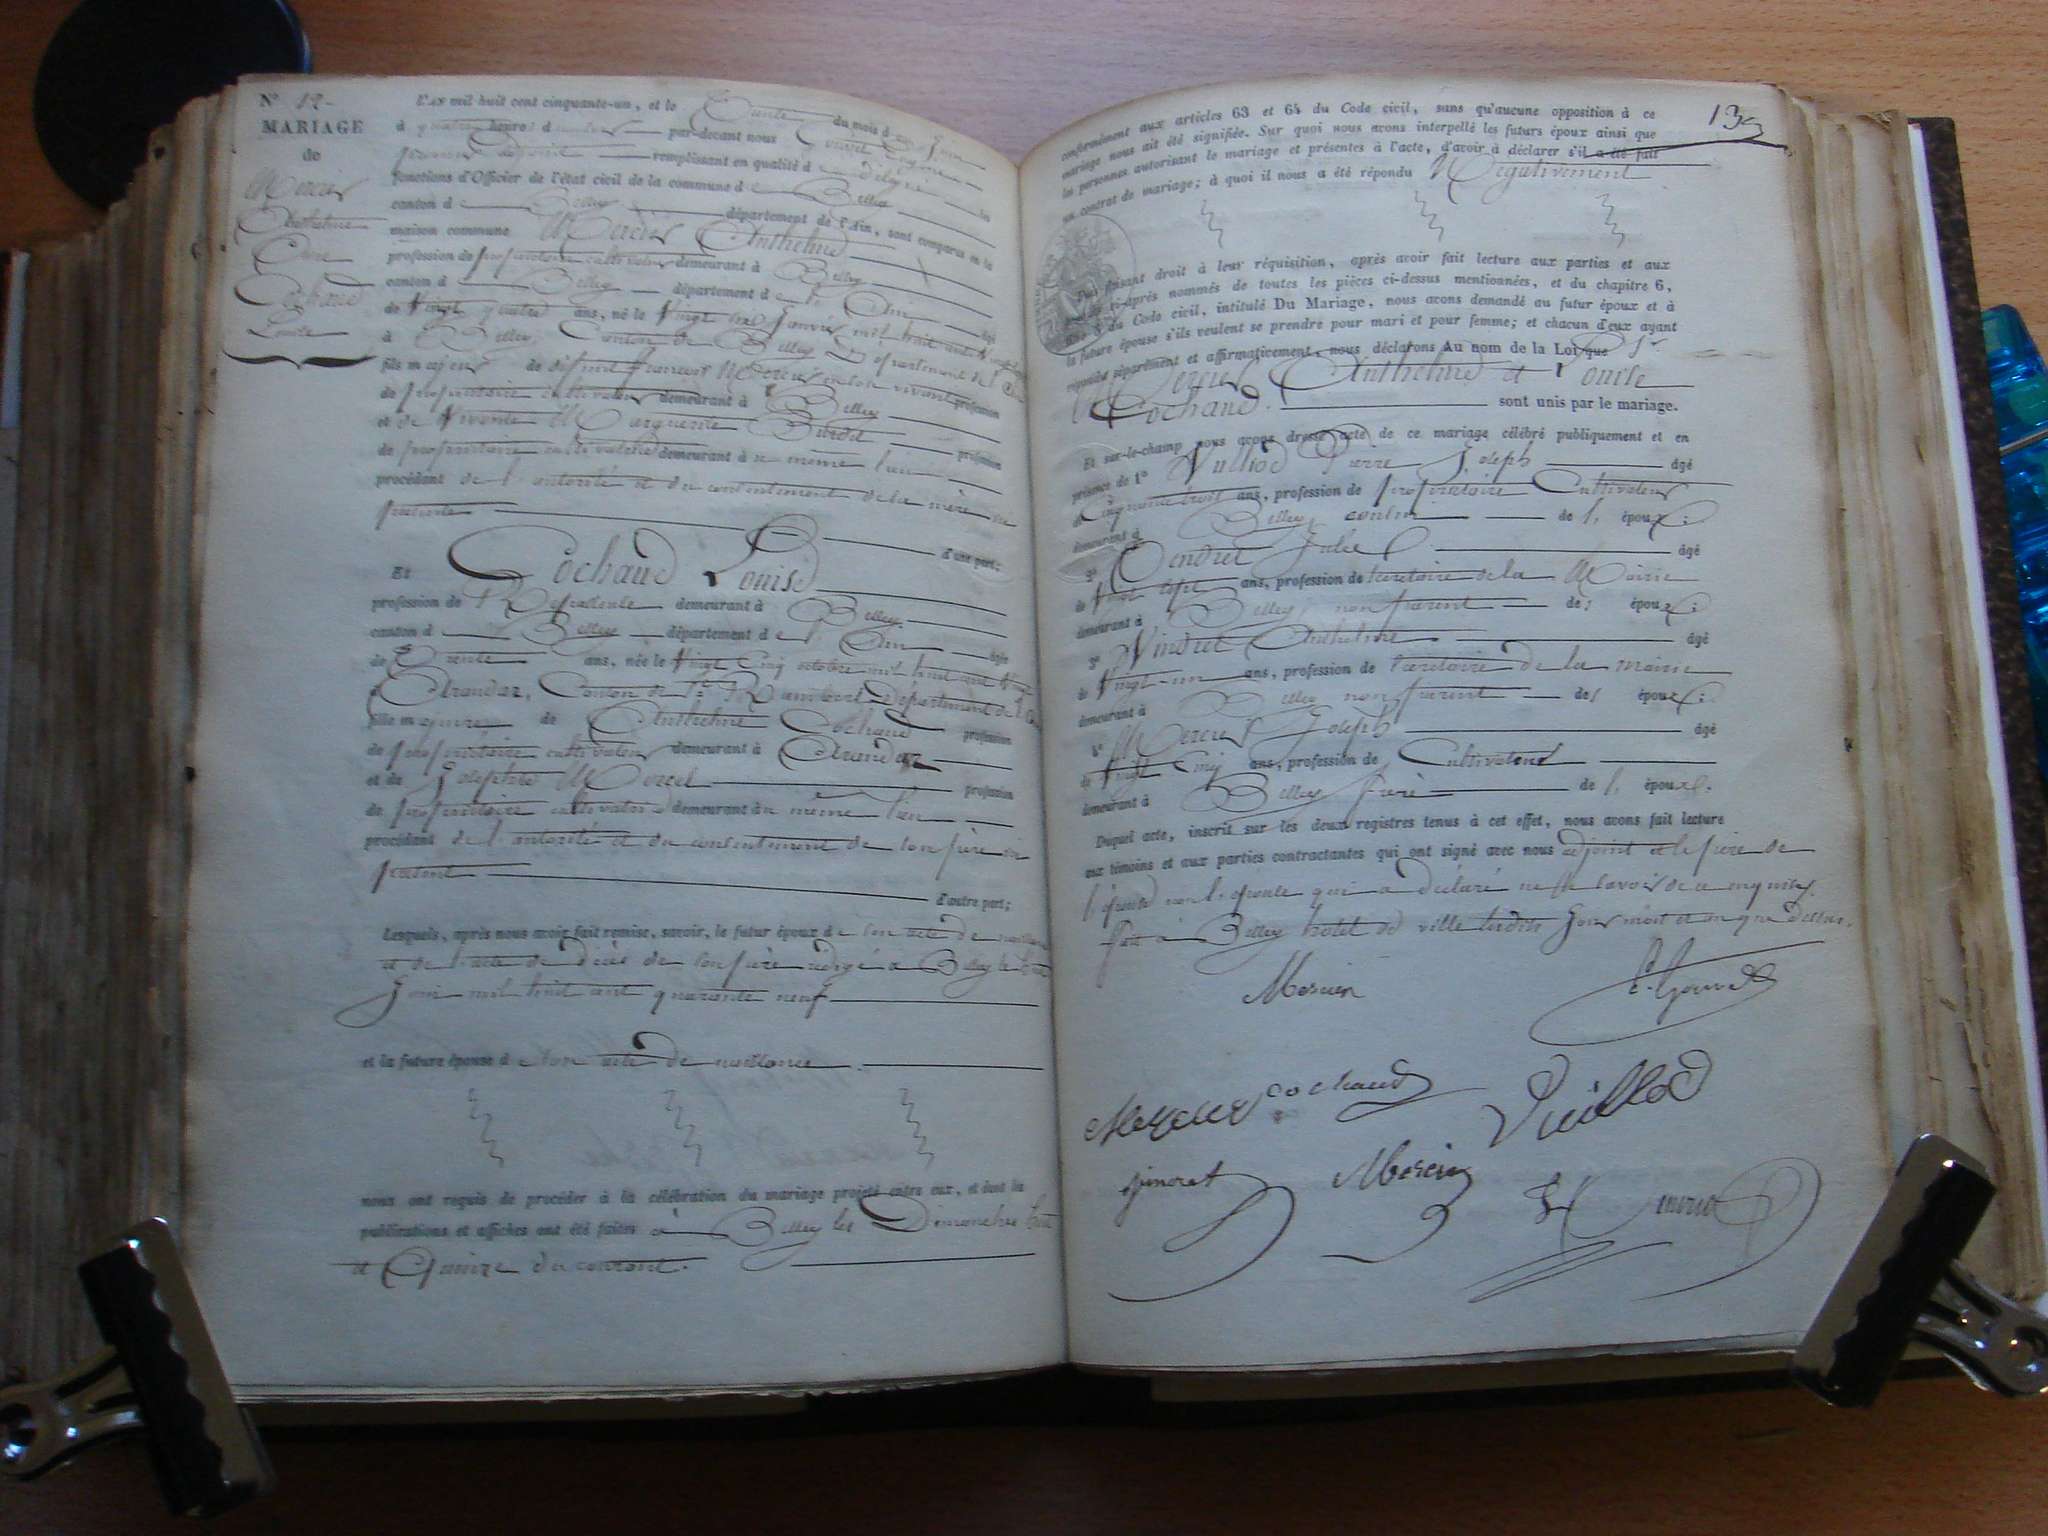 N° 12
MARIAGE
de
Mercier
Anthelme
Avec
Cochand
Louise
L'AN mil huit cent cinquante-un, et le Trente du mois de Juin
à quatre heures du par-devant nous
premier adjoint remplissant en qualité de délégué les
fonctions d'Officier de l'état civil de la commune de Belley
canton de Belley département de l'Ain, sont comparus en la
maison commune Mercier Anthelme
profession de propriétaire cultivateur demeurant à Belley
canton de Belley département de l'Ain âgé
de Vingt quatre ans, né le Vingt Janvier mil huit cent Vingt
à Belley, Canton de Belley Département de l'Ain
fils majeur de défunt François Mercier en son vivant profession
de propriétaire cultivateur demeurant à Belley
et de vivante Marguerite profession
de propriétaire cultivatrice demeurant au même lieu
procédant de l'autorité et du consentement de sa mère ici
présente d'une part;
Et Cochand Louise
profession de demeurant à Belley
canton de Belley département de l'Ain âgée
de Trente ans, née le Vingt Cinq octobre mil huit cent Vingt
à Arandaz, Canton de St Rambert, Département de l'Ain
fille majeure de Anthelme Cochand profession
de propriétaire cultivateur demeurant à Arandaz
et de Josephte Mercier profession
de propriétaire cultivatrice demeurant au même lieu
procédant de l'autorité et du consentement de son père ici
présent d'autre part;
Lesquels, après nous avoir fait remise, savoir, le futur époux de son acte de naissance
et de l'acte de décès de son père rédigé à Belley le
Juin mil huit cent quarante neuf
et la future épouse de son acte de naissance.
nous ont requis de procéder à la célébration du mariage projeté entre eux, et dont les
publications et affiches ont été faites à Belley les Dimanches huit
et Quinze du courant.
13
conformément aux articles 63 et 64 du Code civil, sans qu'aucune opposition à ce
mariage nous ait été signifiée. Sur quoi nous avons interpellé les futurs époux ainsi que
les personnes autorisant le mariage et présentes à l'acte, d'avoir à déclarer s'il a été fait
un contrat de mariage; à quoi il nous a été répondu Négativement
faisant droit à leur réquisition, après avoir fait lecture aux parties et aux
ci-après nommés de toutes les pièces ci-dessus mentionnées, et du chapitre 6,
du Code civil, intitulé Du Mariage, nous avons demandé au futur époux et à
la future épouse s'ils veulent se prendre pour mari et pour femme; et chacun d'eux ayant
répondu séparément et affirmativement, nous déclarons Au nom de la Loi que
Mercier Anthelme et Louise
Cochand. sont unis par le mariage.
Et sur-le-champ nous avons dressé acte de ce mariage célébré publiquement et en
présence de 1° Vulliod Pierre Joseph âgé
de Cinquante trois ans, profession de propriétaire Cultivateur
demeurant à Belley, cousin de l'époux;
2° Jules âgé
de Vingt sept ans, profession de secrétaire de la Mairie
demeurant à Belley, non parent des époux;
3° Anthelme âgé
de Vingt-un ans, profession de secrétaire de la mairie
demeurant à Belley non parent des époux;
4° Mercier Joseph âgé
de Vingt Cinq ans, profession de Cultivateur
demeurant à Belley frère de l'époux.
Duquel acte, inscrit sur les deux registres tenus à cet effet, nous avons fait lecture
aux témoins et aux parties contractantes qui ont signé avec nous adjoint et le père de
l'épouse non l'épouse qui a déclaré ne le savoir de ce enquises.
fait à Belley hôtel de ville lesdits Jour mois et an que dessus.
Mercier
cochaud
Vuillod
Mercier